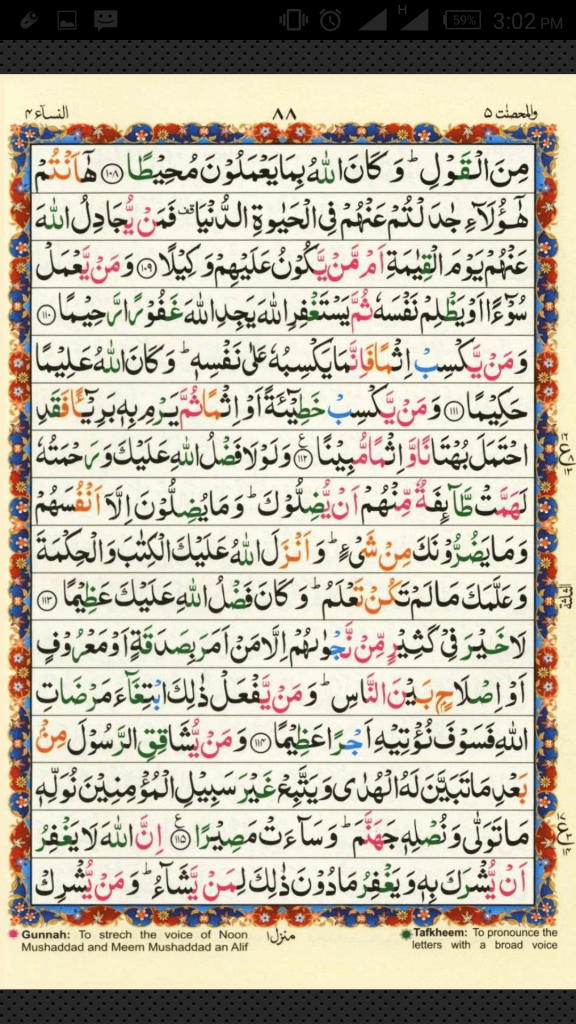 H 59% 3:02 PM
النسآء ٤ ٨٨ والمحصنٰت ٥
مِنَ الْقَوْلِ ؕ وَ كَانَ اللّٰهُ بِمَا يَعْمَلُوْنَ مُحِيْطًا ﴿۱۰۸﴾ هٰۤاَنْتُمْ
هٰۤؤُلَآءِ جٰدَلْتُمْ عَنْهُمْ فِى الْحَيٰوةِ الدُّنْيَا قف فَمَنْ يُّجَادِلُ اللّٰهَ
عَنْهُمْ يَوْمَ الْقِيٰمَةِ اَمْ مَّنْ يَّكُوْنُ عَلَيْهِمْ وَكِيْلًا ﴿۱۰۹﴾ وَ مَنْ يَّعْمَلْ
سُوْٓءًا اَوْ يَظْلِمْ نَفْسَهٗ ثُمَّ يَسْتَغْفِرِ اللّٰهَ يَجِدِ اللّٰهَ غَفُوْرًا رَّحِيْمًا ﴿۱۱۰﴾
وَ مَنْ يَّكْسِبْ اِثْمًا فَاِنَّمَا يَكْسِبُهٗ عَلٰى نَفْسِهٖ ؕ وَ كَانَ اللّٰهُ عَلِيْمًا
حَكِيْمًا ﴿۱۱۱﴾ وَ مَنْ يَّكْسِبْ خَطِيْٓئَةً اَوْ اِثْمًا ثُمَّ يَرْمِ بِهٖ بَرِيْٓئًا فَقَدِ
احْتَمَلَ بُهْتَانًا وَّ اِثْمًا مُّبِيْنًا ﴿۱۱۲﴾ ع وَ لَوْ لَا فَضْلُ اللّٰهِ عَلَيْكَ وَ رَحْمَتُهٗ
لَهَمَّتْ طَّآئِفَةٌ مِّنْهُمْ اَنْ يُّضِلُّوْكَ ؕ وَ مَا يُضِلُّوْنَ اِلَّاۤ اَنْفُسَهُمْ
وَ مَا يَضُرُّوْنَكَ مِنْ شَىْءٍ ؕ وَ اَنْزَلَ اللّٰهُ عَلَيْكَ الْكِتٰبَ وَ الْحِكْمَةَ
وَ عَلَّمَكَ مَا لَمْ تَكُنْ تَعْلَمُ ؕ وَ كَانَ فَضْلُ اللّٰهِ عَلَيْكَ عَظِيْمًا ﴿۱۱۳﴾
لَا خَيْرَ فِىْ كَثِيْرٍ مِّنْ نَّجْوٰىهُمْ اِلَّا مَنْ اَمَرَ بِصَدَقَةٍ اَوْ مَعْرُوْفٍ
اَوْ اِصْلَاحٍۭ بَيْنَ النَّاسِ ؕ وَ مَنْ يَّفْعَلْ ذٰلِكَ ابْتِغَآءَ مَرْضَاتِ
اللّٰهِ فَسَوْفَ نُؤْتِيْهِ اَجْرًا عَظِيْمًا ﴿۱۱۴﴾ وَ مَنْ يُّشَاقِقِ الرَّسُوْلَ مِنْۢ
بَعْدِ مَا تَبَيَّنَ لَهُ الْهُدٰى وَ يَتَّبِعْ غَيْرَ سَبِيْلِ الْمُؤْمِنِيْنَ نُوَلِّهٖ
مَا تَوَلّٰى وَ نُصْلِهٖ جَهَنَّمَ ؕ وَ سَآءَتْ مَصِيْرًا ﴿۱۱۵﴾ ع اِنَّ اللّٰهَ لَا يَغْفِرُ
اَنْ يُّشْرَكَ بِهٖ وَ يَغْفِرُ مَا دُوْنَ ذٰلِكَ لِمَنْ يَّشَآءُ ؕ وَ مَنْ يُّشْرِكْ
Gunnah: To strech the voice of Noon Mushaddad and Meem Mushaddad an Alif
منزل ۱
Tafkheem: To pronounce the letters with a broad voice